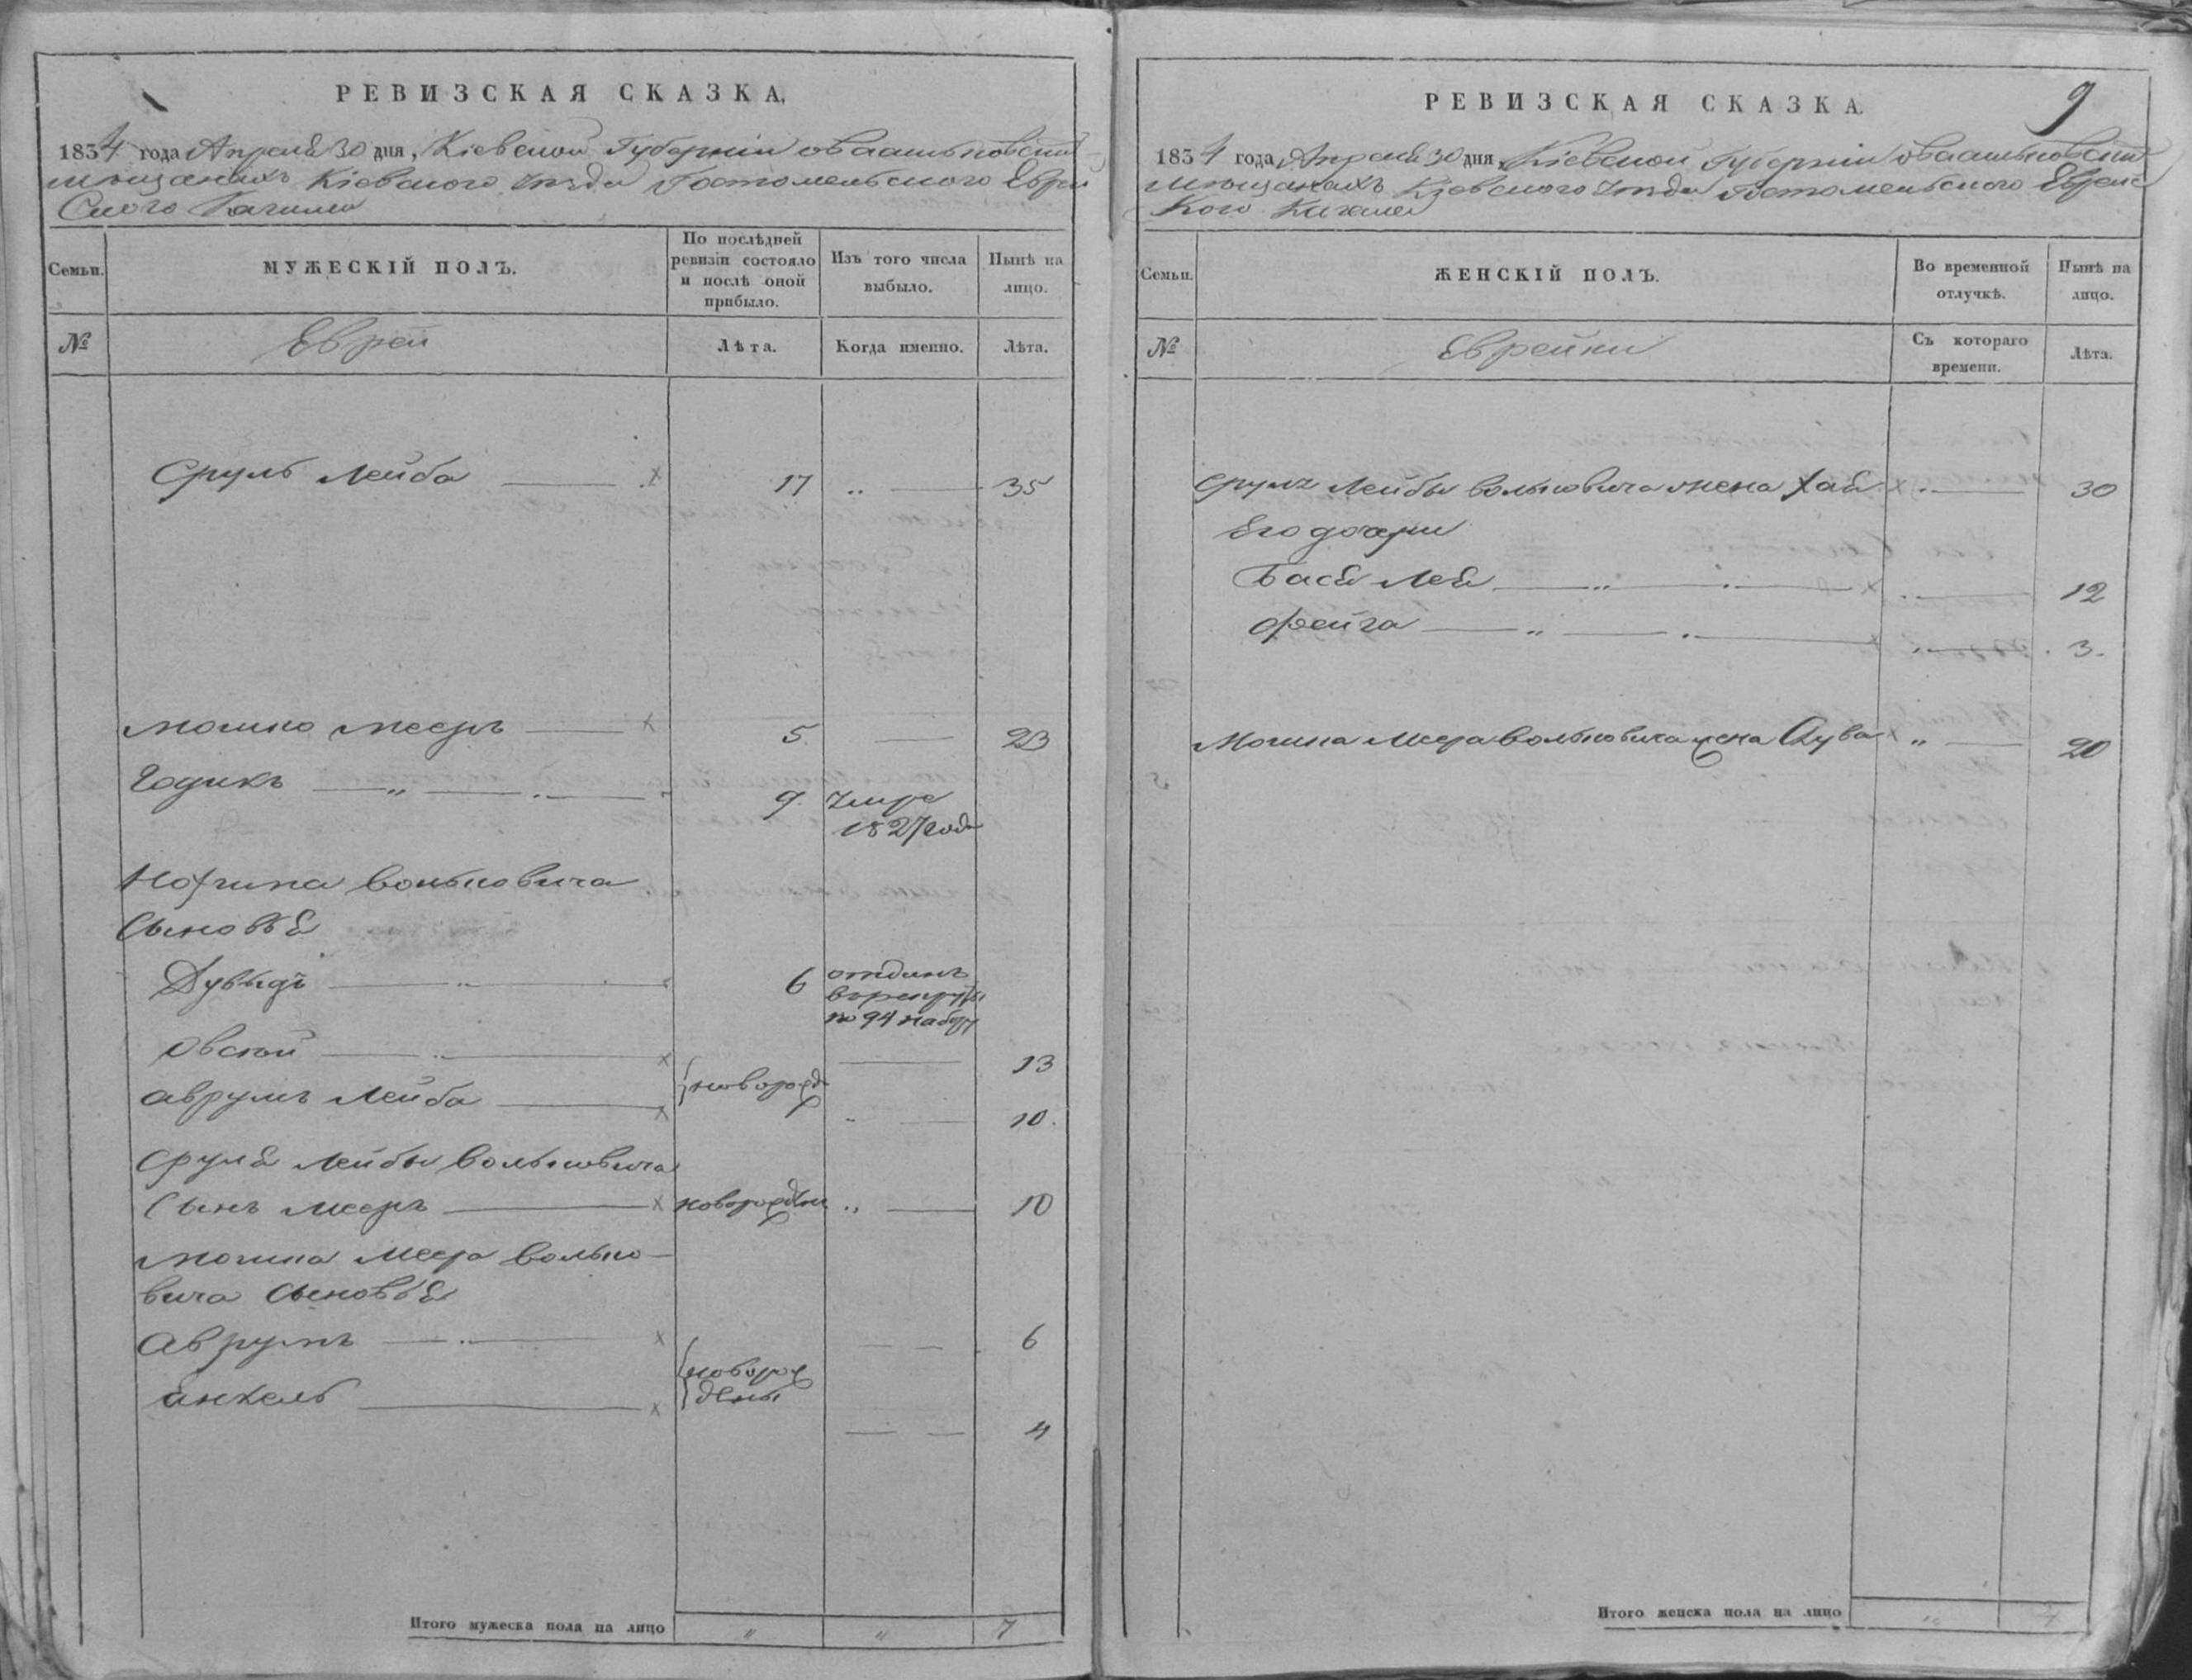 РЕВИЗСКАЯ СКАЗКА.
1834 года Апреля 30 дня, Кіевской Губерніи о Васильковскихъ
мещанахъ Кіевского Уезда Гостомельского Еврей
Ского Кагала
Семьи.
МУЖЕСКІЙ ПОЛЪ.
По послѣдней ревизіи состояло и послѣ оной прибыло.
Изъ того числа выбыло.
Нынѣ на лицо.
№
Еврей
Лѣта.
Когда именно.
Лѣта.
Сруль Лейба 17 35
Мошко Мееръ 5. 23
Годикъ 9. Умре
1827 года
Вольковича
Сыновья
Дувыдъ 6 отданъ
в рекруты
по 94 набору
Овсей 13
новорожд
Аврумъ Лейба 10.
Сруля Лейбы Вольковича
Сынъ Мееръ 10
Мошка Меера Волько-
вича Сыновья
Аврумъ 6
новорож
дены
Анкель 4
Итого мужеска пола на лицо 7
РЕВИЗСКАЯ СКАЗКА.
9
1834 года Апреля 30 дня Кіевской Губерніи о Васильковскихъ
мещанахъ Кіевского Уезда Гостомельского Еврейс
Кого Кагала
Семьи.
ЖЕНСКІЙ ПОЛЪ.
Во временной отлучкѣ.
Нынѣ на лицо.
№
Еврейки
Съ котораго времени.
Лѣта.
Сруля Лейбы Вольковича жена Хая 30
Его дочери
Бася Лея 12
Фейга 3.
Мошка Меера Вольковича жена 20
Итого женска пола на лицо